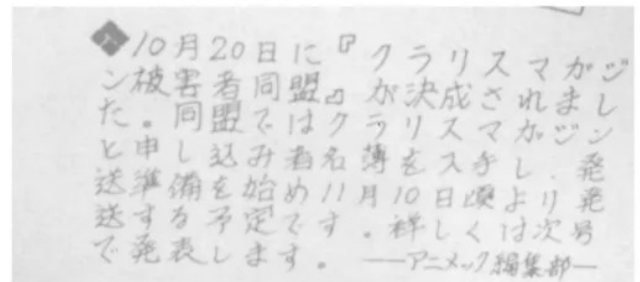 ◆10月20日に『クラリスマガジ
ン被害者同盟』が決成されまし
た。同盟ではクラリスマガジン
と申し込み者名簿を入手し、発
送準備を始め11月10日頃より発
送する予定です。祥しくは次号
で発表します。──アニメック編集部─